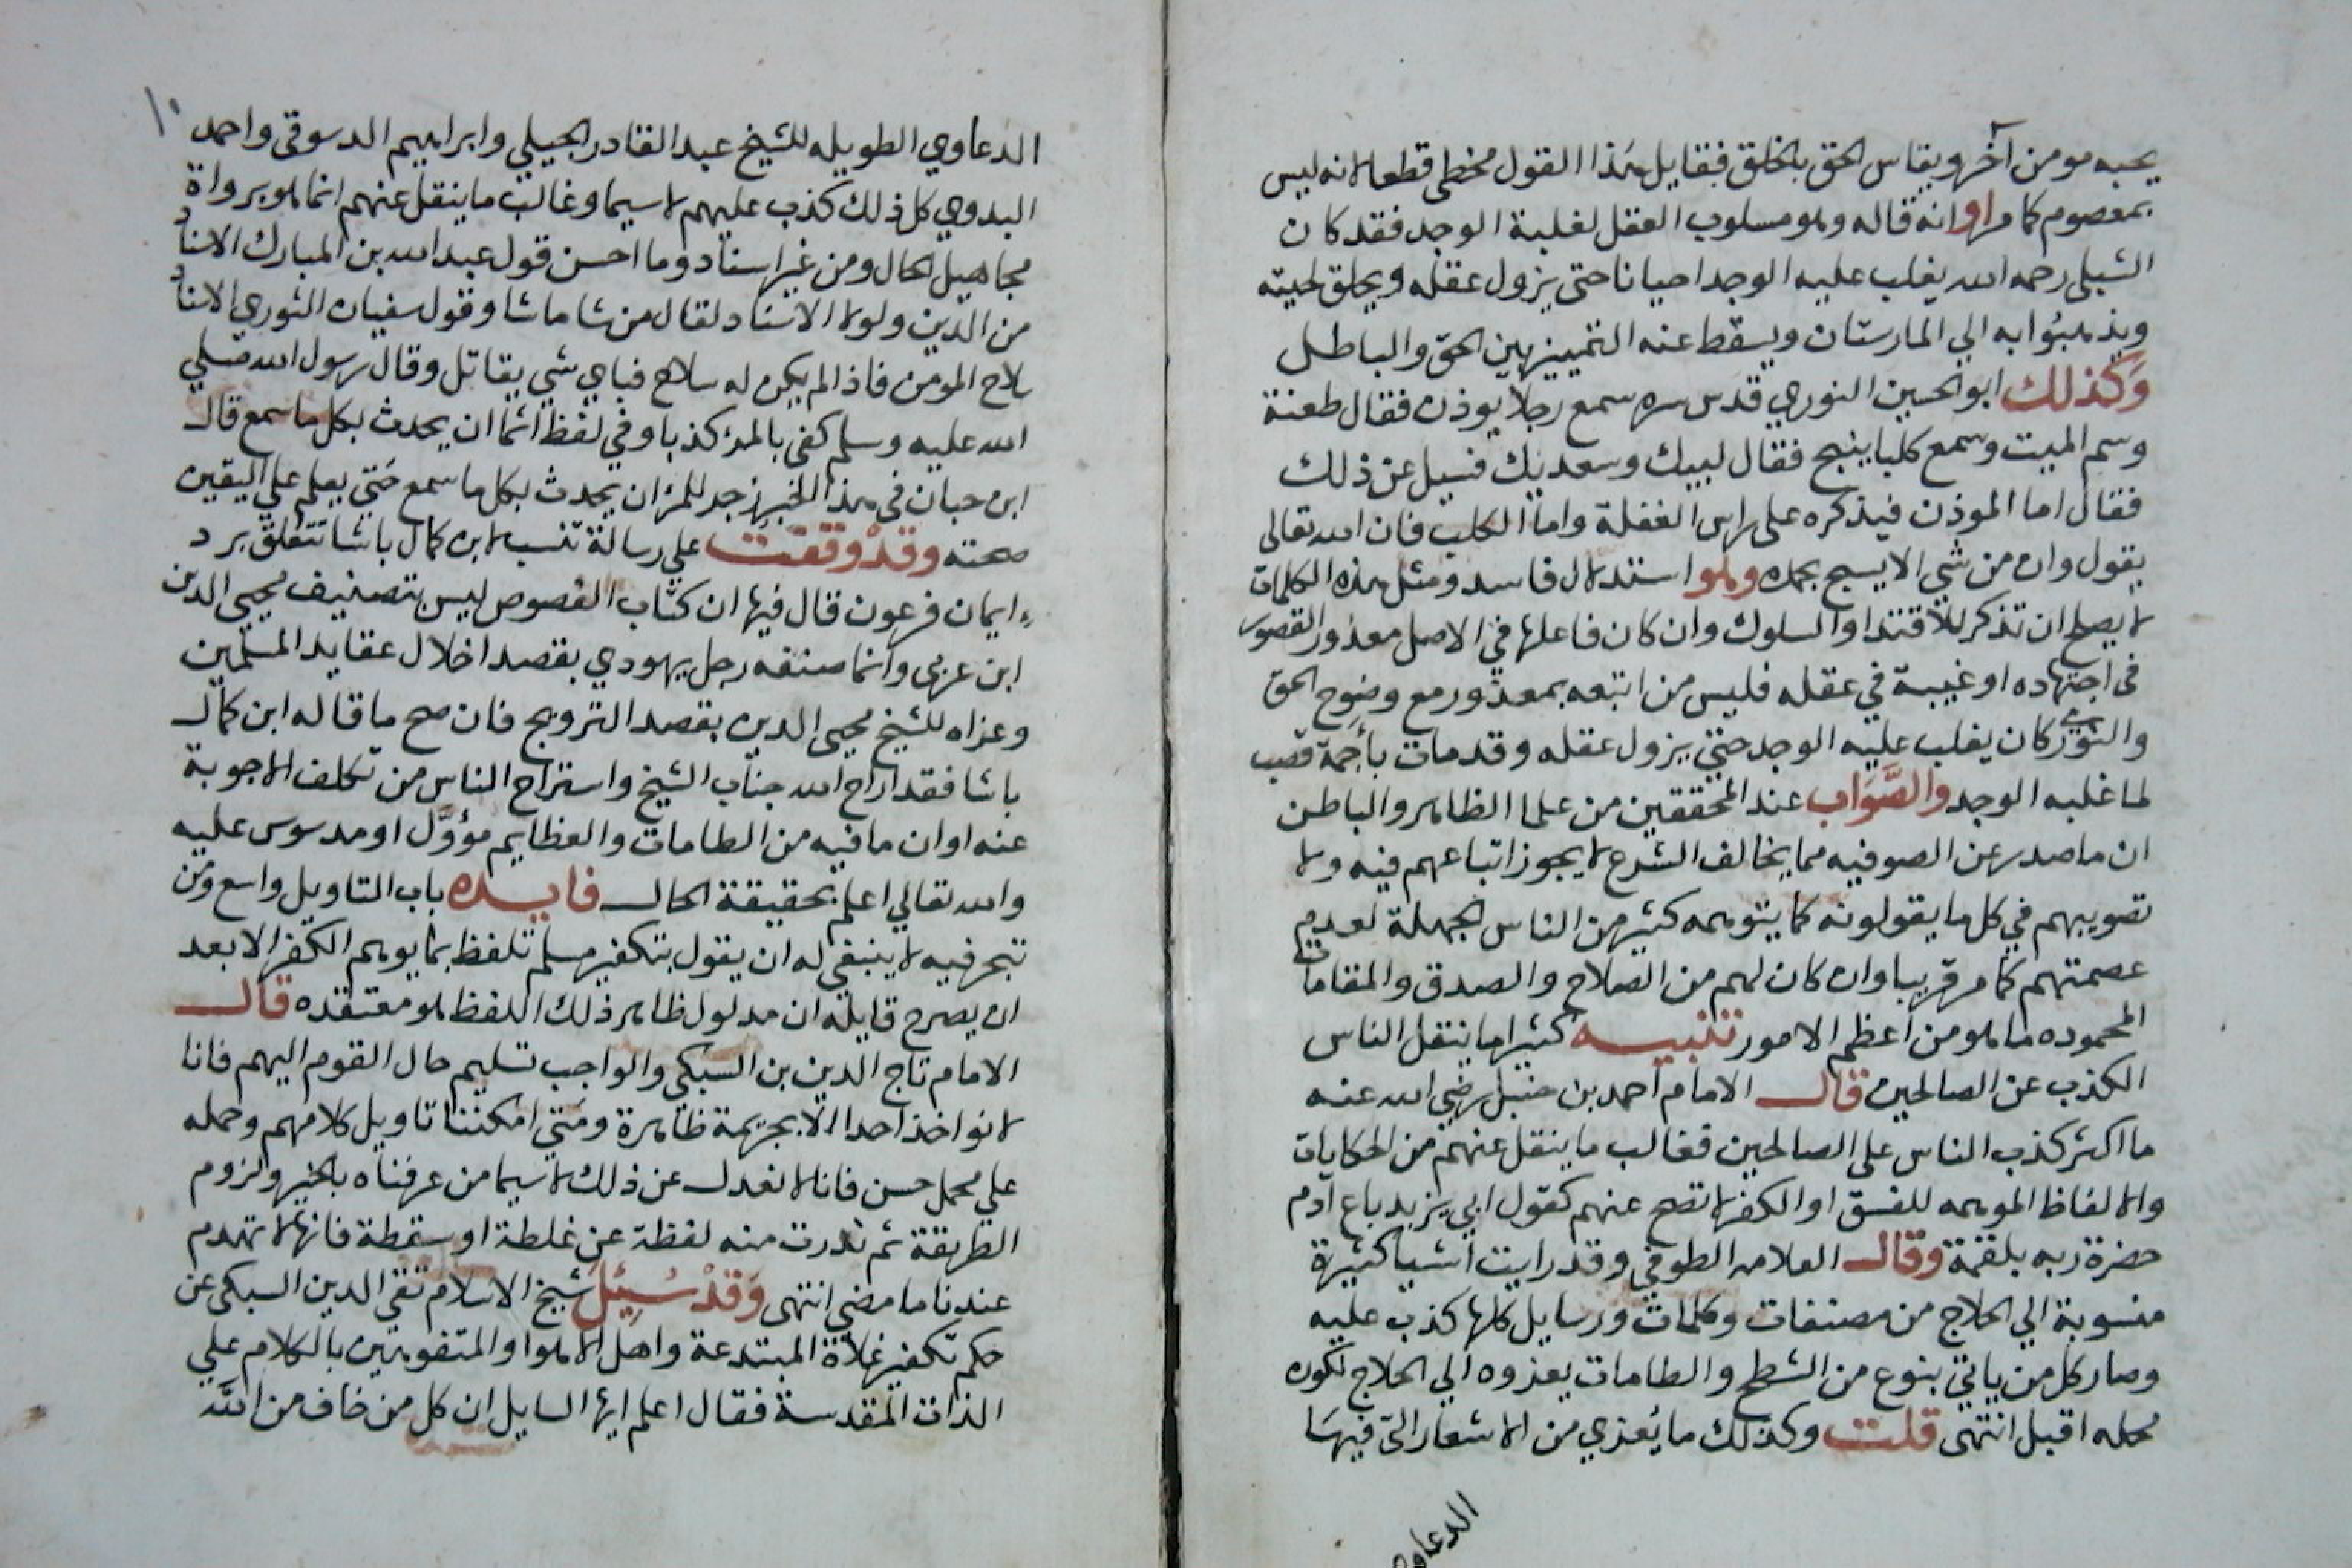 يحبه مومن آخر ويقاس الحق بالخلق فقايل هذا القول مخطي قطعا لانه ليس
بمعصوم كما مر او انه قاله وهو مسلوب العقل لغلبة الوجد فقد كان
الشبلي رحمه الله يغلب عليه الوجد احيانا حتى يزول عقله ويحلق لحيته
ويذهبوا به الي المارستان ويسقط عنه التمييز بين الحق والباطل
وكذلك ابو الحسين النوري قدس سره سمع رجلا يوذن فقال طعنة
وسم الميت وسمع كلبا ينبح فقال لبيك وسعديك فسيل عن ذلك
فقال اما الموذن فيذكره على راس الغفلة واما الكلب فان الله تعالى
يقول وان من شي الا يسبح بحمده وهو استدلال فاسد ومثل هذه الكلمات
لا يصلح ان تذكر للاقتدا والسلوك وان كان فاعلها في الاصل معذور القصور
في اجتهاده او غيبة في عقله فليس من اتبعه بمعذور مع وضوح الحق
والنوري كان يغلب عليه الوجد حتى يزول عقله وقد مات بأجمة قصب
لما غلبه الوجد والصَّوَاب عند المحققين من علما الظاهر والباطن
ان ما صدر عن الصوفيه مما يخالف الشرع لا يجوز اتباعهم فيه ولا
تصويبهم في كل ما يقولونه كما يتوهمه كثير من الناس الجهلة لعدم
عصمتهم كما مر قريبا وان كان لهم من الصلاح والصدق والمقامات
المحموده ما هو من اعظم الامور تنبيه كثيرا ما ينقل الناس
الكذب عن الصالحين قال الامام احمد بن حنبل رضي الله عنه
ما اكثر كذب الناس على الصالحين فغالب ما ينقل عنهم من الحكايات
والالفاظ الموهمه للفسق او الكفر لا تصح عنهم كقول ابي يزيد باع آدم
حضرة ربه بلقمة وقال العلامه الطوفي وقد رايت اشيا كثيرة
منسوبة الي الحلاج من مصنفات وكلمات ورسايل كلها كذب عليه
وصار كل من ياتي بنوع من الشطح والطامات يعزوه الي الحلاج لكون
محله اقبل انتهى قلت وكذلك ما يُعزي من الاشعار التي فيها
الدعاوي
١٠
الدعاوي الطويله للشيخ عبد القادر الجيلي وابراهيم الدسوقي واحمد
البدوي كل ذلك كذب عليهم لا سيما وغالب ما ينقل عنهم انما هو برواة
مجاهيل الحال ومن غير اسناد وما احسن قول عبد الله بن المبارك الاسناد
من الدين ولولا الاسناد لقال من شا ما شا وقول سفيان الثوري الاسناد
سلاح المومن فاذا لم يكن له سلاح فباي شي يقاتل وقال رسول الله صلي
الله عليه وسلم كفى بالمرء كذبا وفي لفظ اثما ان يحدث بكل ما سمع قال
ابن حبان في هذا الخبر زجر للمرء ان يحدث بكل ما سمع حتي يعلم علي اليقين
صحته وقدْ وقفت علي رسالة تنسب لابن كمال باشا تتعلق برد
ايمان فرعون قال فيها ان كتاب الفصوص ليس بتصنيف محيى الدين
ابن عربي وانما صنفه رجل يهودي بقصد اخلال عقايد المسلمين
وعزاه للشيخ محيى الدين بقصد الترويج فان صح ما قاله ابن كمال
باشا فقد اراح الله جناب الشيخ واستراح الناس من تكلف الاجوبة
عنه او ان ما فيه من الطامات والعظايم مؤوَّل او مدسوس عليه
والله تعالي اعلم بحقيقة الحال فايده باب التاويل واسع ومن
تبحر فيه لا ينبغي له ان يقول بتكفير مسلم تلفظ بما يوهم الكفر الا بعد
ان يصرح قايله ان مدلول ظاهر ذلك اللفظ هو معتقده قال
الامام تاج الدين بن السبكي والواجب تسليم حال القوم اليهم فانا
لا نواخذ احدا الا بجريمة ظاهرة ومتي امكننا تاويل كلامهم وحمله
علي محمل حسن فانا لا نعدل عن ذلك لا سيما من عرفناه بالخير ولزوم
الطريقة ثم ندرت منه لفظة عن غلطة او سقطة فانها لا تهدم
عندنا ما مضي انتهى وَقَدْ سُئِلَ شيخ الاسلام تقي الدين السبكي عن
حكم تكفير غلاة المبتدعة واهل الاهوا والمتفوهين بالكلام علي
الذات المقدسة فقال اعلم ايها السايل ان كل من خاف من اللَّه